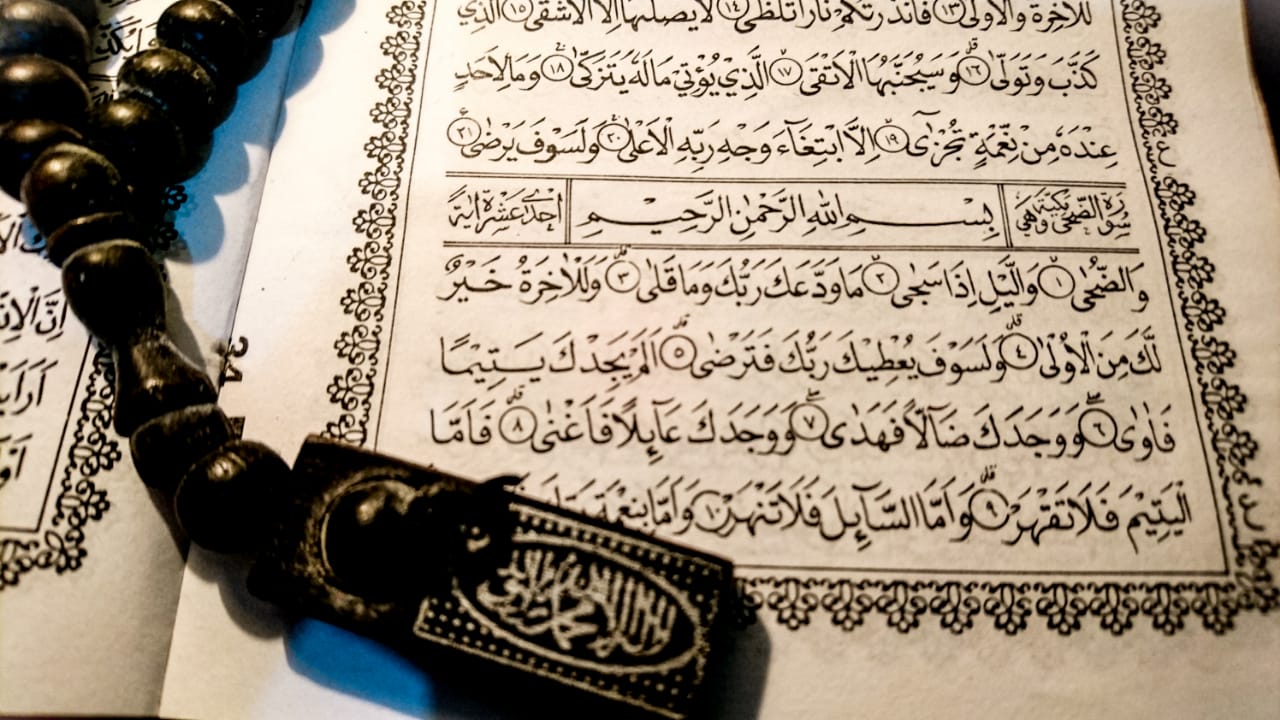 لَلْاٰخِرَةَ وَالْاُوْلٰى ۝١٣ فَاَنْذَرْتُكُمْ نَارًا تَلَظّٰى ۝١٤ لَا يَصْلٰىهَا اِلَّا الْاَشْقَى ۝١٥ الَّذِيْ
كَذَّبَ وَتَوَلّٰى ۝١٦ وَسَيُجَنَّبُهَا الْاَتْقَى ۝١٧ الَّذِيْ يُؤْتِيْ مَالَهٗ يَتَزَكّٰى ۝١٨ وَمَا لِاَحَدٍ
عِنْدَهٗ مِنْ نِّعْمَةٍ تُجْزٰٓى ۝١٩ اِلَّا ابْتِغَآءَ وَجْهِ رَبِّهِ الْاَعْلٰى ۝٢٠ وَلَسَوْفَ يَرْضٰى ۝٢١
سُوْرَةُ الضُّحٰى مَكِّيَّةٌ وَهِيَ بِسْمِ اللهِ الرَّحْمٰنِ الرَّحِيْمِ اِحْدٰى عَشْرَةَ اٰيَةً
وَالضُّحٰى ۝١ وَالَّيْلِ اِذَا سَجٰى ۝٢ مَا وَدَّعَكَ رَبُّكَ وَمَا قَلٰى ۝٣ وَلَلْاٰخِرَةُ خَيْرٌ
لَّكَ مِنَ الْاُوْلٰى ۝٤ وَلَسَوْفَ يُعْطِيْكَ رَبُّكَ فَتَرْضٰى ۝٥ اَلَمْ يَجِدْكَ يَتِيْمًا
فَاٰوٰى ۝٦ وَوَجَدَكَ ضَآلًّا فَهَدٰى ۝٧ وَوَجَدَكَ عَآئِلًا فَاَغْنٰى ۝٨ فَاَمَّا
الْيَتِيْمَ فَلَا تَقْهَرْ ۝٩ وَاَمَّا السَّآئِلَ فَلَا تَنْهَرْ ۝١٠ وَاَمَّا بِنِعْمَةِ
اِنَّ الْاِنْ